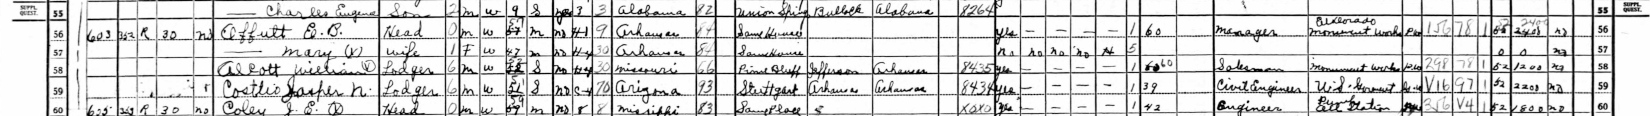 SUPPL. QUEST. 55 — Charles Eugene Son 2 m w 9 S 3 3 Alabama 82 Union Spring Bullock Alabama 8264 55 SUPPL. QUEST.
56 603 252 R 30 no Offutt E. B. Head 0 m w m no H-1 9 Arkansas 84 Same House yes — — — — 1 60 manager Eldorado monument works PW 156 78 1 52 2400 no 56
57 — mary (X) wife 1 F w 47 m no H-4 30 Arkansas 84 Same House no no no no H 5 0 0 no 57
58 Alcott William Lodger 6 m w S no H-4 30 missouri 66 Pine Bluff Jefferson Arkansas 8435 yes — — — — 1 60 Salesman monument works PW 298 78 1 52 1200 no 58
59 Costlio Jasper N. Lodger 6 m w S no C-4 70 Arizona 93 Stuttgart Arkansas Arkansas 8434 yes — — — — 1 39 Civil Engineer U.S. Goverment V16 97 1 52 2200 no 59
60 605 253 R 30 no Coley J. E. (X) Head 0 m w m no 8 8 mississippi 83 Same Place X0X0 yes — — — — 1 42 Engineer Station 356 V4 1 52 1800 no 60